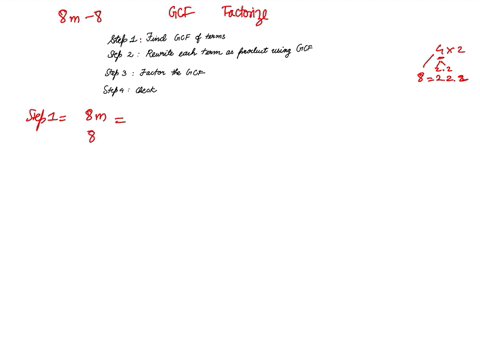 8m - 8 GCF Factorize
Step 1 : Find GCF of terms
Step 2 : Rewrite each term as product using GCF
Step 3 : Factor the GCF
Step 4 : Check
4 × 2
2.2
8 = 2.2.2
Step 1 = 8m =
8